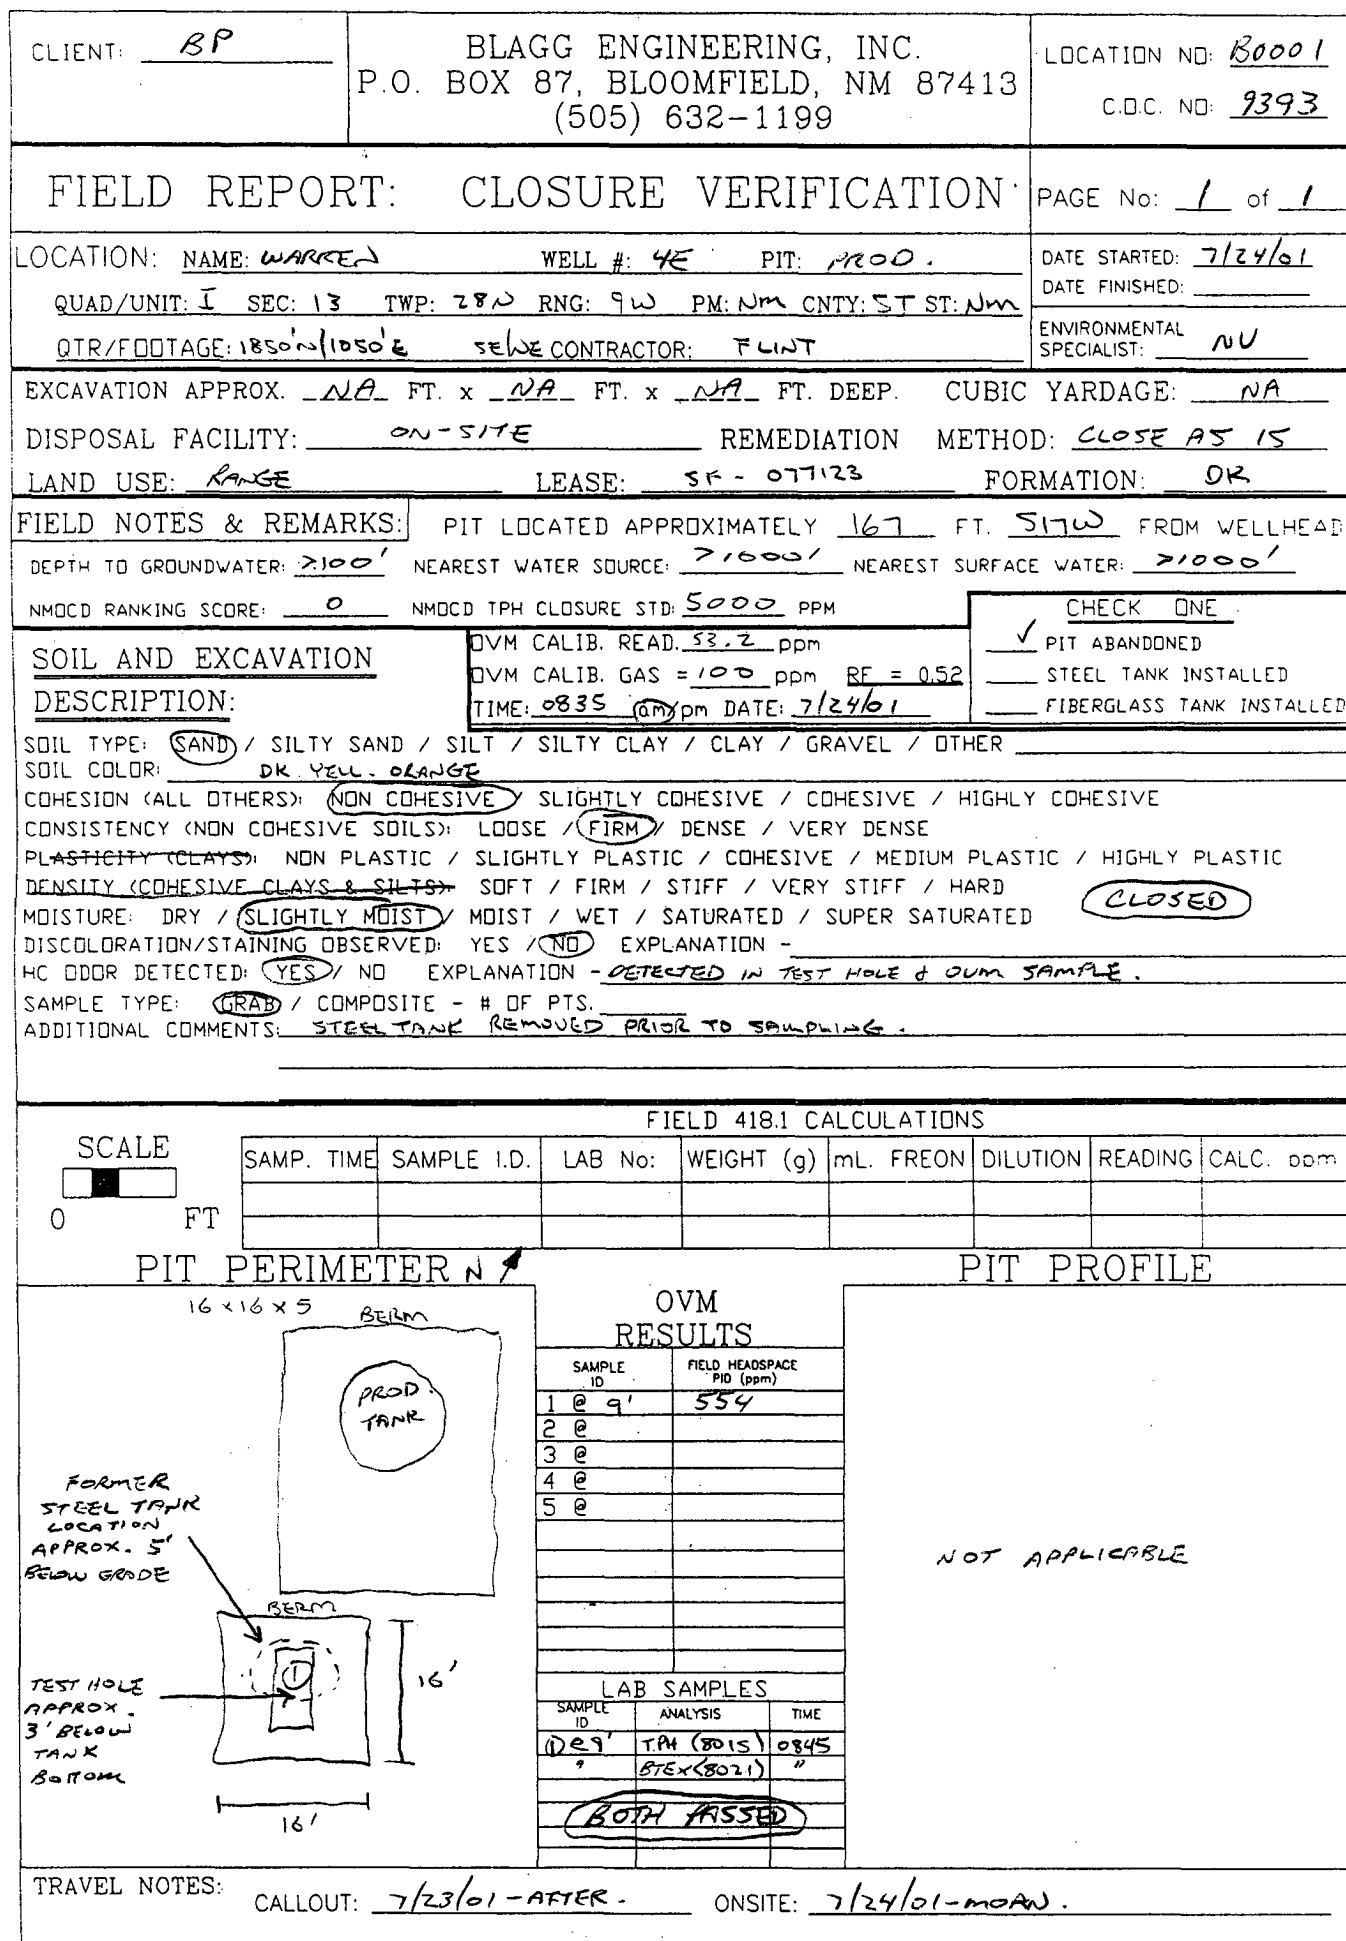 CLIENT: BP
BLAGG ENGINEERING, INC.
P.O. BOX 87, BLOOMFIELD, NM 87413
(505) 632-1199
LOCATION NO: B0001
C.O.C. NO: 9393
FIELD REPORT: CLOSURE VERIFICATION
PAGE No: 1 of 1
LOCATION: NAME: WARREN WELL #: 4E PIT: PROD.
QUAD/UNIT: I SEC: 13 TWP: 28N RNG: 9W PM: NM CNTY: ST ST: NM
QTR/FOOTAGE: 1850'N/1050'E SE/NE CONTRACTOR: FLINT
DATE STARTED: 7/24/01
DATE FINISHED:
ENVIRONMENTAL
SPECIALIST: NV
EXCAVATION APPROX. NA FT. x NA FT. x NA FT. DEEP. CUBIC YARDAGE: NA
DISPOSAL FACILITY: ON-SITE REMEDIATION METHOD: CLOSE AS IS
LAND USE: RANGE LEASE: SF - 077123 FORMATION: DK
FIELD NOTES & REMARKS: PIT LOCATED APPROXIMATELY 167 FT. S17W FROM WELLHEAD
DEPTH TO GROUNDWATER: >100' NEAREST WATER SOURCE: >1000' NEAREST SURFACE WATER: >1000'
NMOCD RANKING SCORE: 0 NMOCD TPH CLOSURE STD: 5000 PPM
CHECK ONE
✓ PIT ABANDONED
STEEL TANK INSTALLED
FIBERGLASS TANK INSTALLED
SOIL AND EXCAVATION
DESCRIPTION:
OVM CALIB. READ. 53.2 ppm
OVM CALIB. GAS = 100 ppm RF = 0.52
TIME: 0835 am/pm DATE: 7/24/01
SOIL TYPE: SAND / SILTY SAND / SILT / SILTY CLAY / CLAY / GRAVEL / OTHER
SOIL COLOR: DK. YELL. ORANGE
COHESION (ALL OTHERS): NON COHESIVE / SLIGHTLY COHESIVE / COHESIVE / HIGHLY COHESIVE
CONSISTENCY (NON COHESIVE SOILS): LOOSE / FIRM / DENSE / VERY DENSE
PLASTICITY (CLAYS): NON PLASTIC / SLIGHTLY PLASTIC / COHESIVE / MEDIUM PLASTIC / HIGHLY PLASTIC
DENSITY (COHESIVE CLAYS & SILTS): SOFT / FIRM / STIFF / VERY STIFF / HARD
MOISTURE: DRY / SLIGHTLY MOIST / MOIST / WET / SATURATED / SUPER SATURATED
CLOSED
DISCOLORATION/STAINING OBSERVED: YES / NO EXPLANATION -
HC ODOR DETECTED: YES / NO EXPLANATION - DETECTED IN TEST HOLE & OVM SAMPLE.
SAMPLE TYPE: GRAB / COMPOSITE - # OF PTS.
ADDITIONAL COMMENTS: STEEL TANK REMOVED PRIOR TO SAMPLING.
FIELD 418.1 CALCULATIONS
SCALE
0 FT
SAMP. TIME SAMPLE I.D. LAB No: WEIGHT (g) mL. FREON DILUTION READING CALC. ppm
PIT PERIMETER N
PIT PROFILE
16 x 16 x 5
BERM
PROD.
TANK
FORMER
STEEL TANK
LOCATION
APPROX. 5'
BELOW GRADE
BERM
1
16'
TEST HOLE
APPROX.
3' BELOW
TANK
BOTTOM
16'
OVM
RESULTS
SAMPLE ID FIELD HEADSPACE PID (ppm)
1 @ 9' 554
2 @
3 @
4 @
5 @
LAB SAMPLES
SAMPLE ID ANALYSIS TIME
① @ 9' TPH (8015) 0845
" BTEX (8021) "
BOTH PASSED
NOT APPLICABLE
TRAVEL NOTES: CALLOUT: 7/23/01 - AFTER. ONSITE: 7/24/01 - MORN.